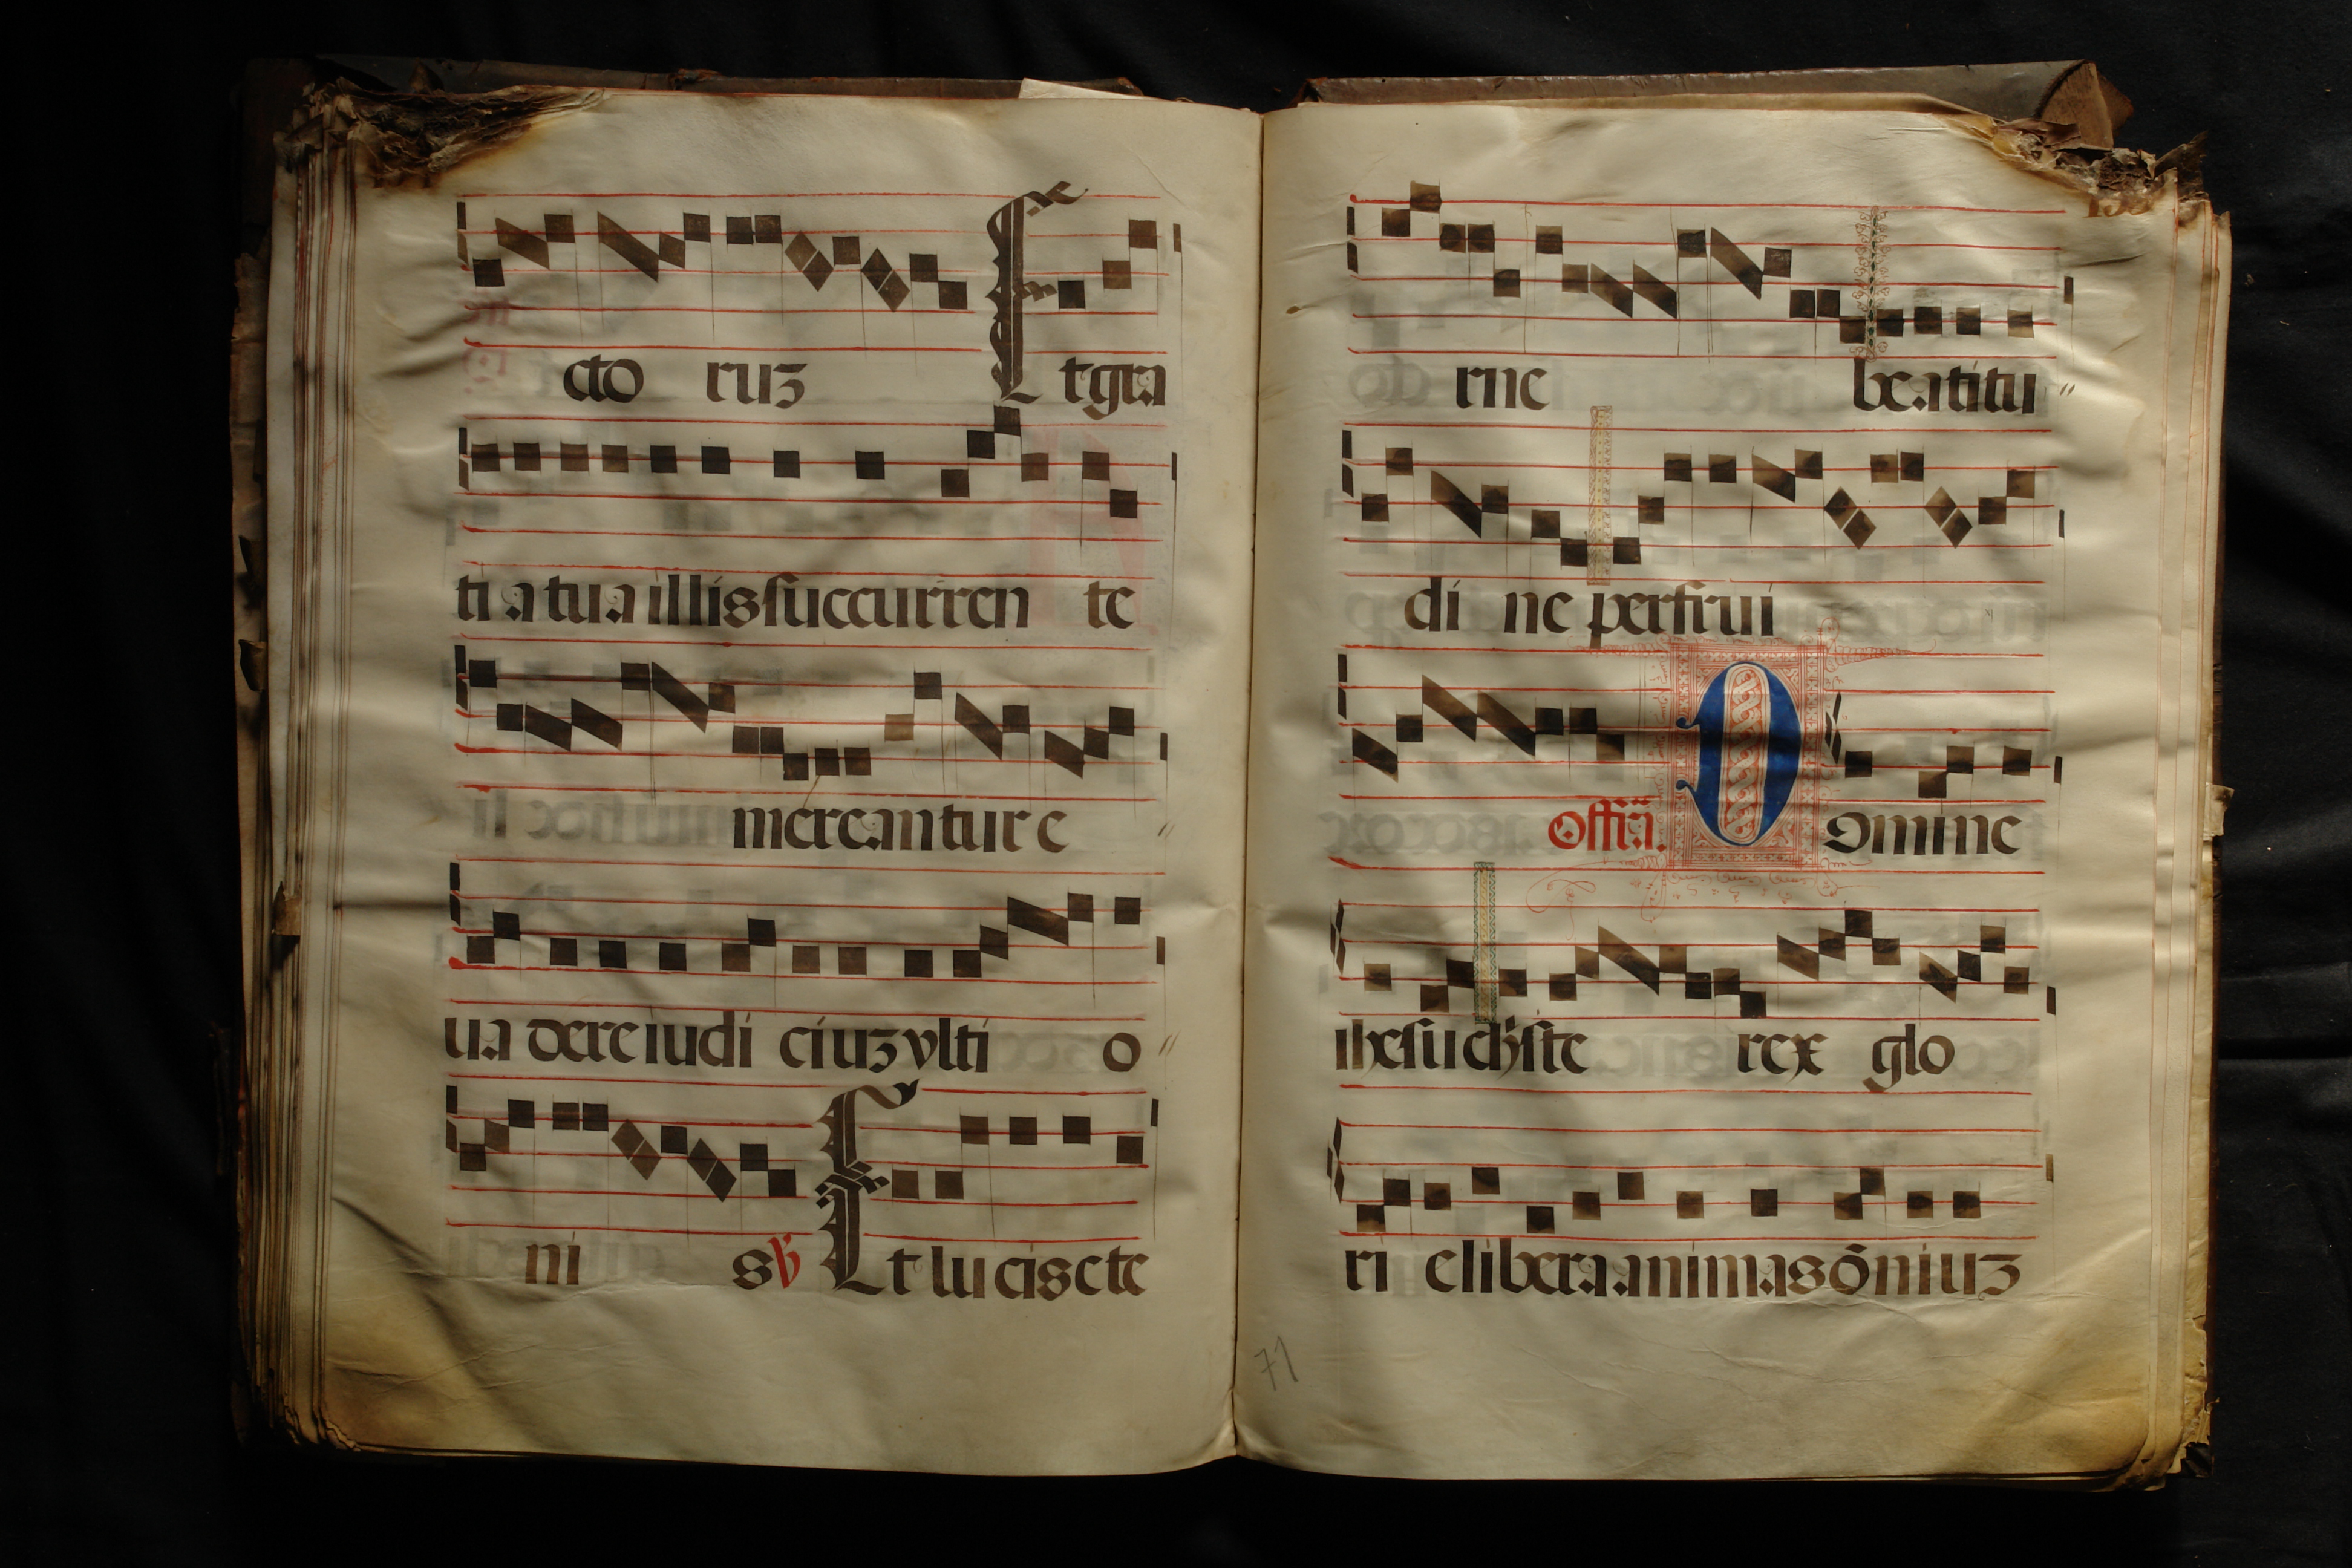 cto ruz Et gra
ti a tua illis succurren te
mereantur e
ua dere iudi ciuz ulti o
ni s ℣ Et lu cis ete
rne beatitu
di ne perfrui
Offr̃a. Domine
ihesu christe rex glo
ri e libera animas õniuz
71